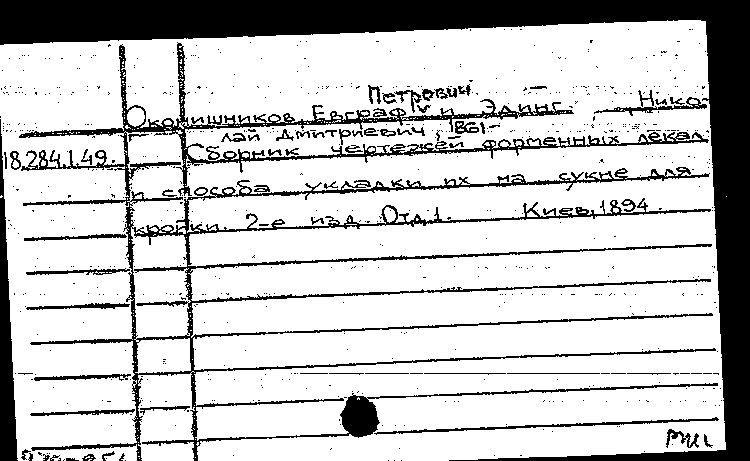 Петрович
Околишников, Евграф и Эдинг, Нико-
лай Дмитриевич, 1861-
18.284.1.49. Сборник чертежей форменных лекал
и способа укладки их на сукне для
кройки. 2-е изд. Отд. 1. Киев, 1894.